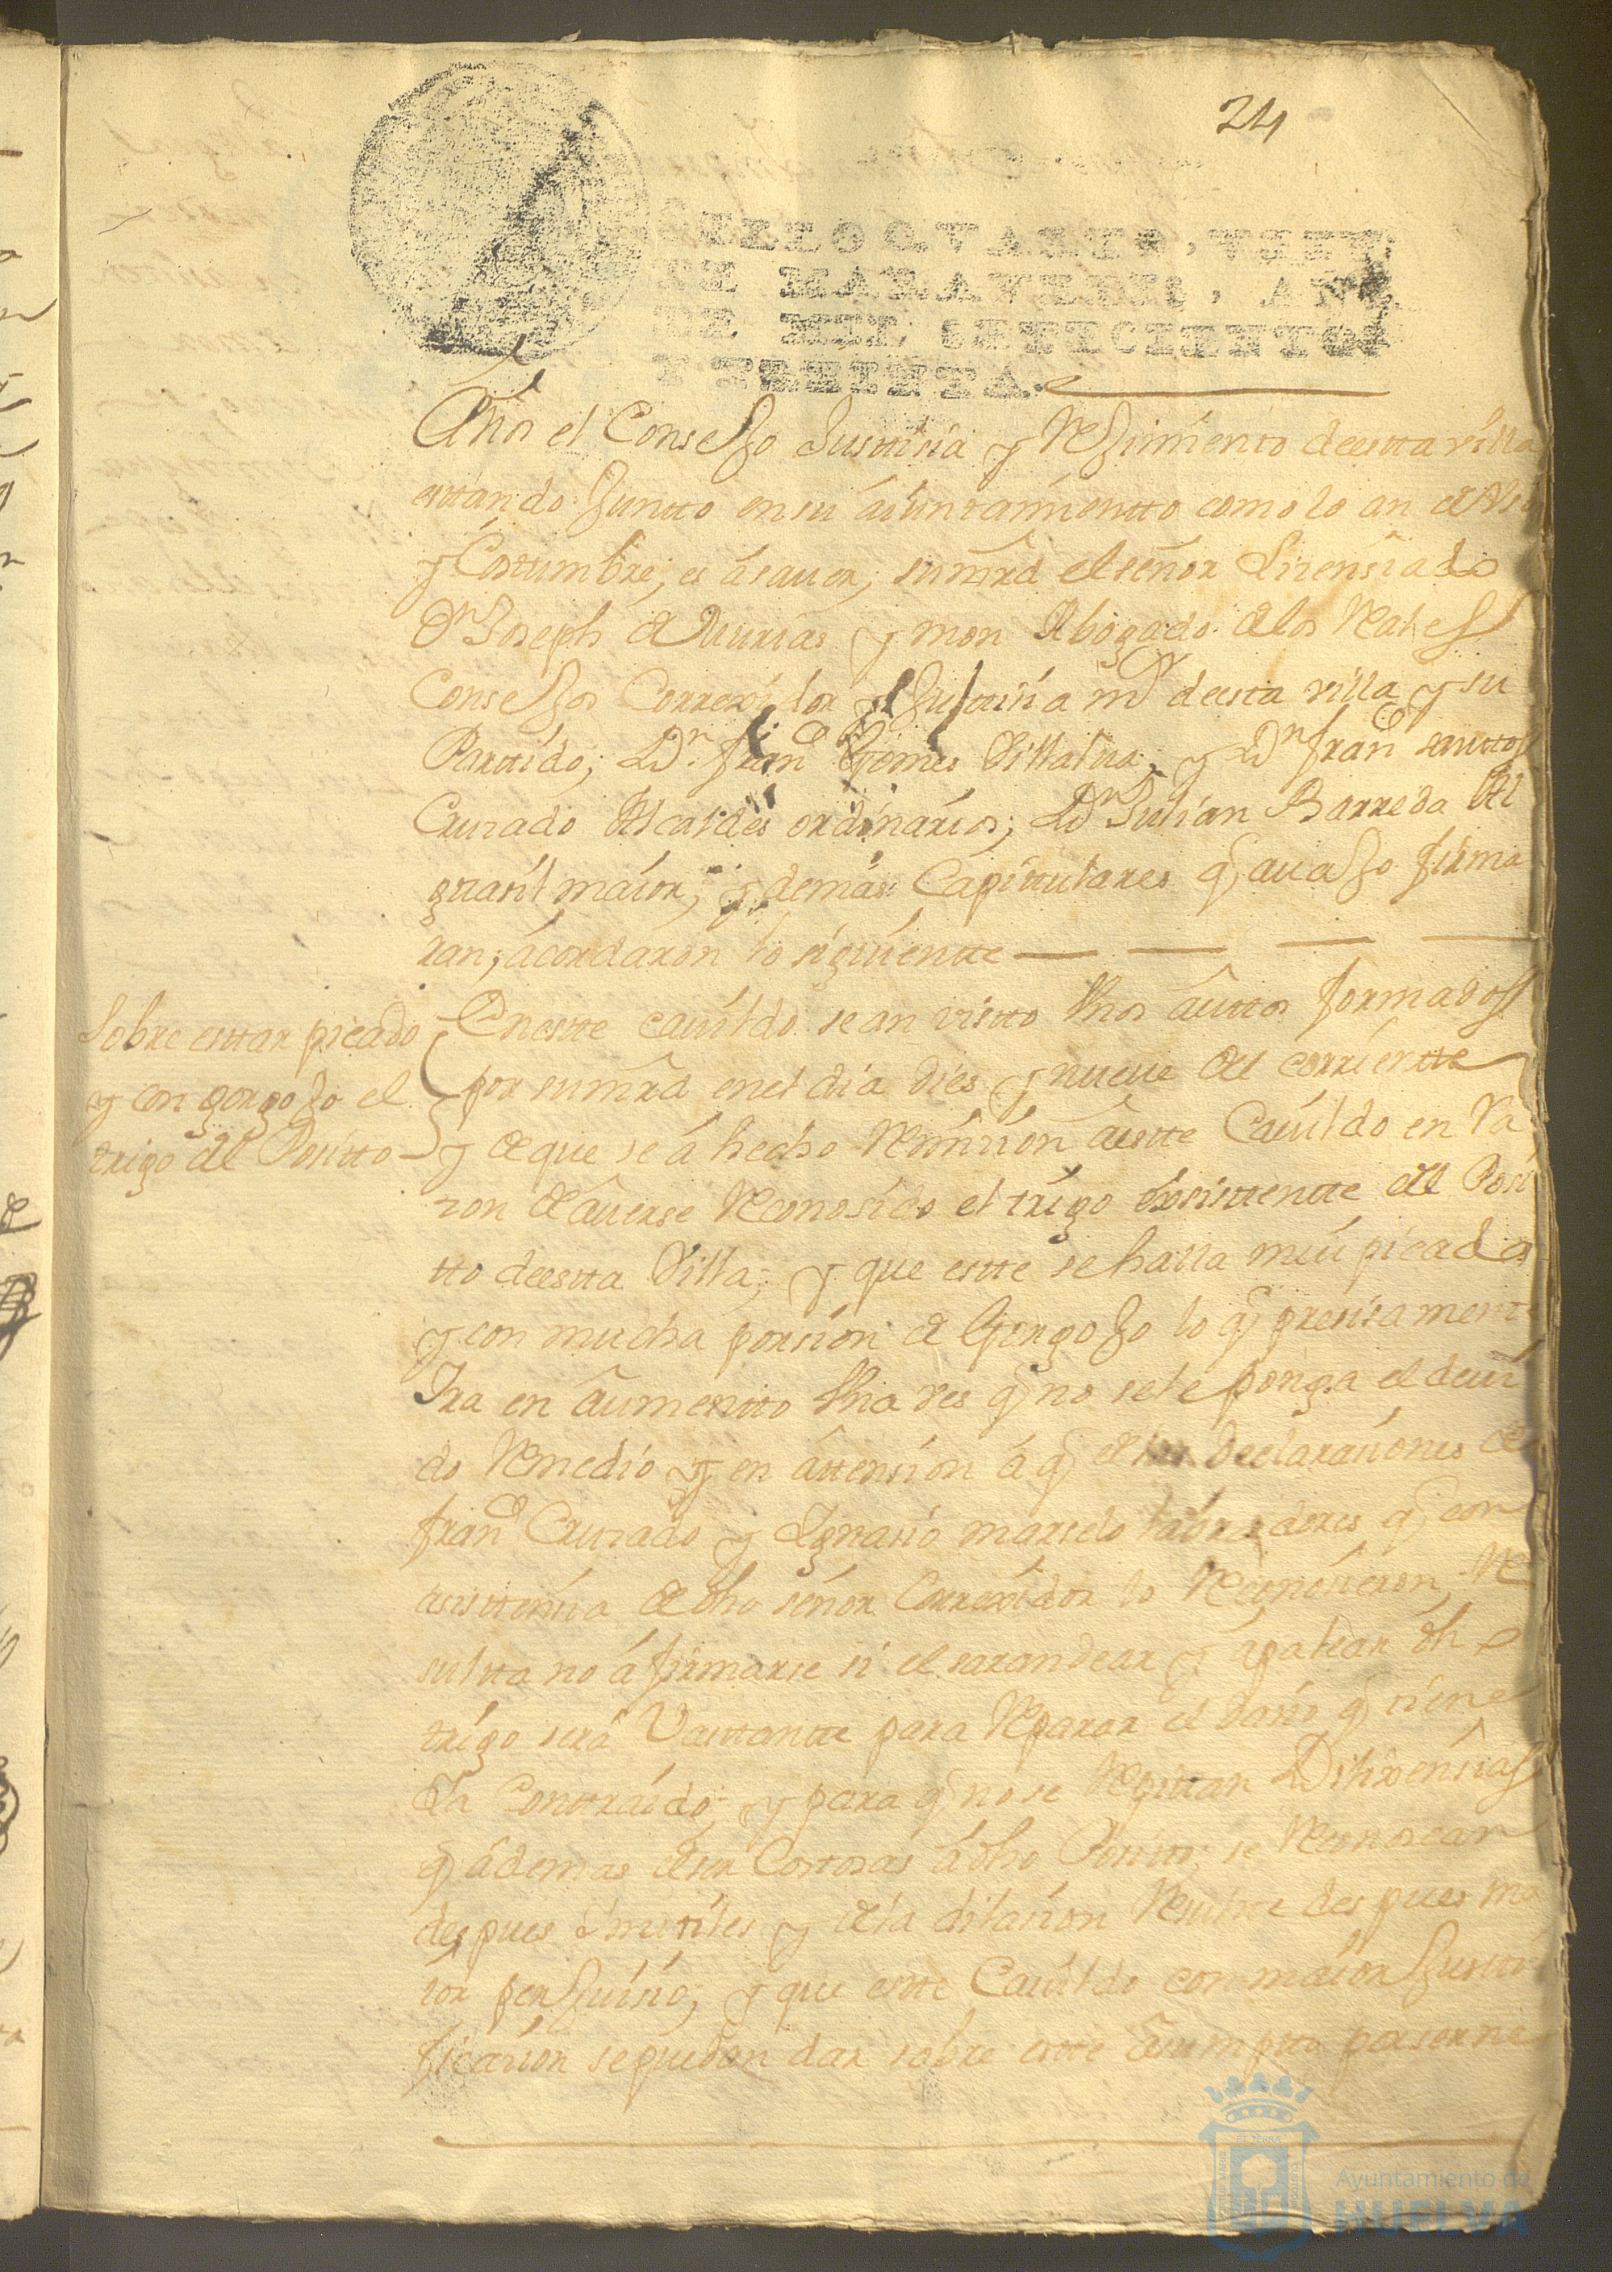 24
SELLO QVARTO, VEIN
TE MARAVEDIS, AÑO
DE MIL SETECIENTOS
Y TREINTA.
el Consejo Justtisia y Rejimiento deestta villa
esttando Juntto en su aiuntamientto como lo an de Uso
y Costumbre, es a sauer, su mrd el señor Lisensiado
Dn Joseph de y mon Abogado de los Rates
Consejos Correxidor y Justtisia mr deesta villa y su
Parttido; Dn franco Gomes Villalua, y Dn franco santtos
Cruzado Alcaldes ordinarios; Dn Julian Barreda Al
guasil maior; y demas Capittulares q auajo firma
ran; acordaron lo siguientte
Sobre esttar picado
y con gorgojo el
trigo del Positto
En estte cauildo se an vistto Uhos auttos formados
por su mrd en el dia dies y nueue del corrientte
y de que se a hecho Remision a estte Cauildo en Ra
zon de auerse Reconosido el trigo Exsisttentte del Posi
tto deestta Villa; y que estte se halla mui picado
y con mucha porsion de Gorgojo lo q presisament
Ira en aumentto Uha ves q no se le ponga el deui
do Remedio y en attension a q de las Declarasiones de
franco Cruzado y Ignasio marselo labradores q con
asisttensia de dho señor Correxidor lo Reconosieron, Re
sultta no afirmarse si el sarandear y apalear dho
trigo sera Vasttantte para Reparar el daño q tiene
Ia Conttraido; y para q no se Repittan Dilixensias
q ademas de ser Costosas a dho Positto, se Reconoscan
despues Inutiles y de la dilasion Resulte despues ma
ior perjuisio; y que estte Cauildo con maior Justti
ficasion se puedan dar sobre estte Asumptto
Ayuntamiento de
HUELVA